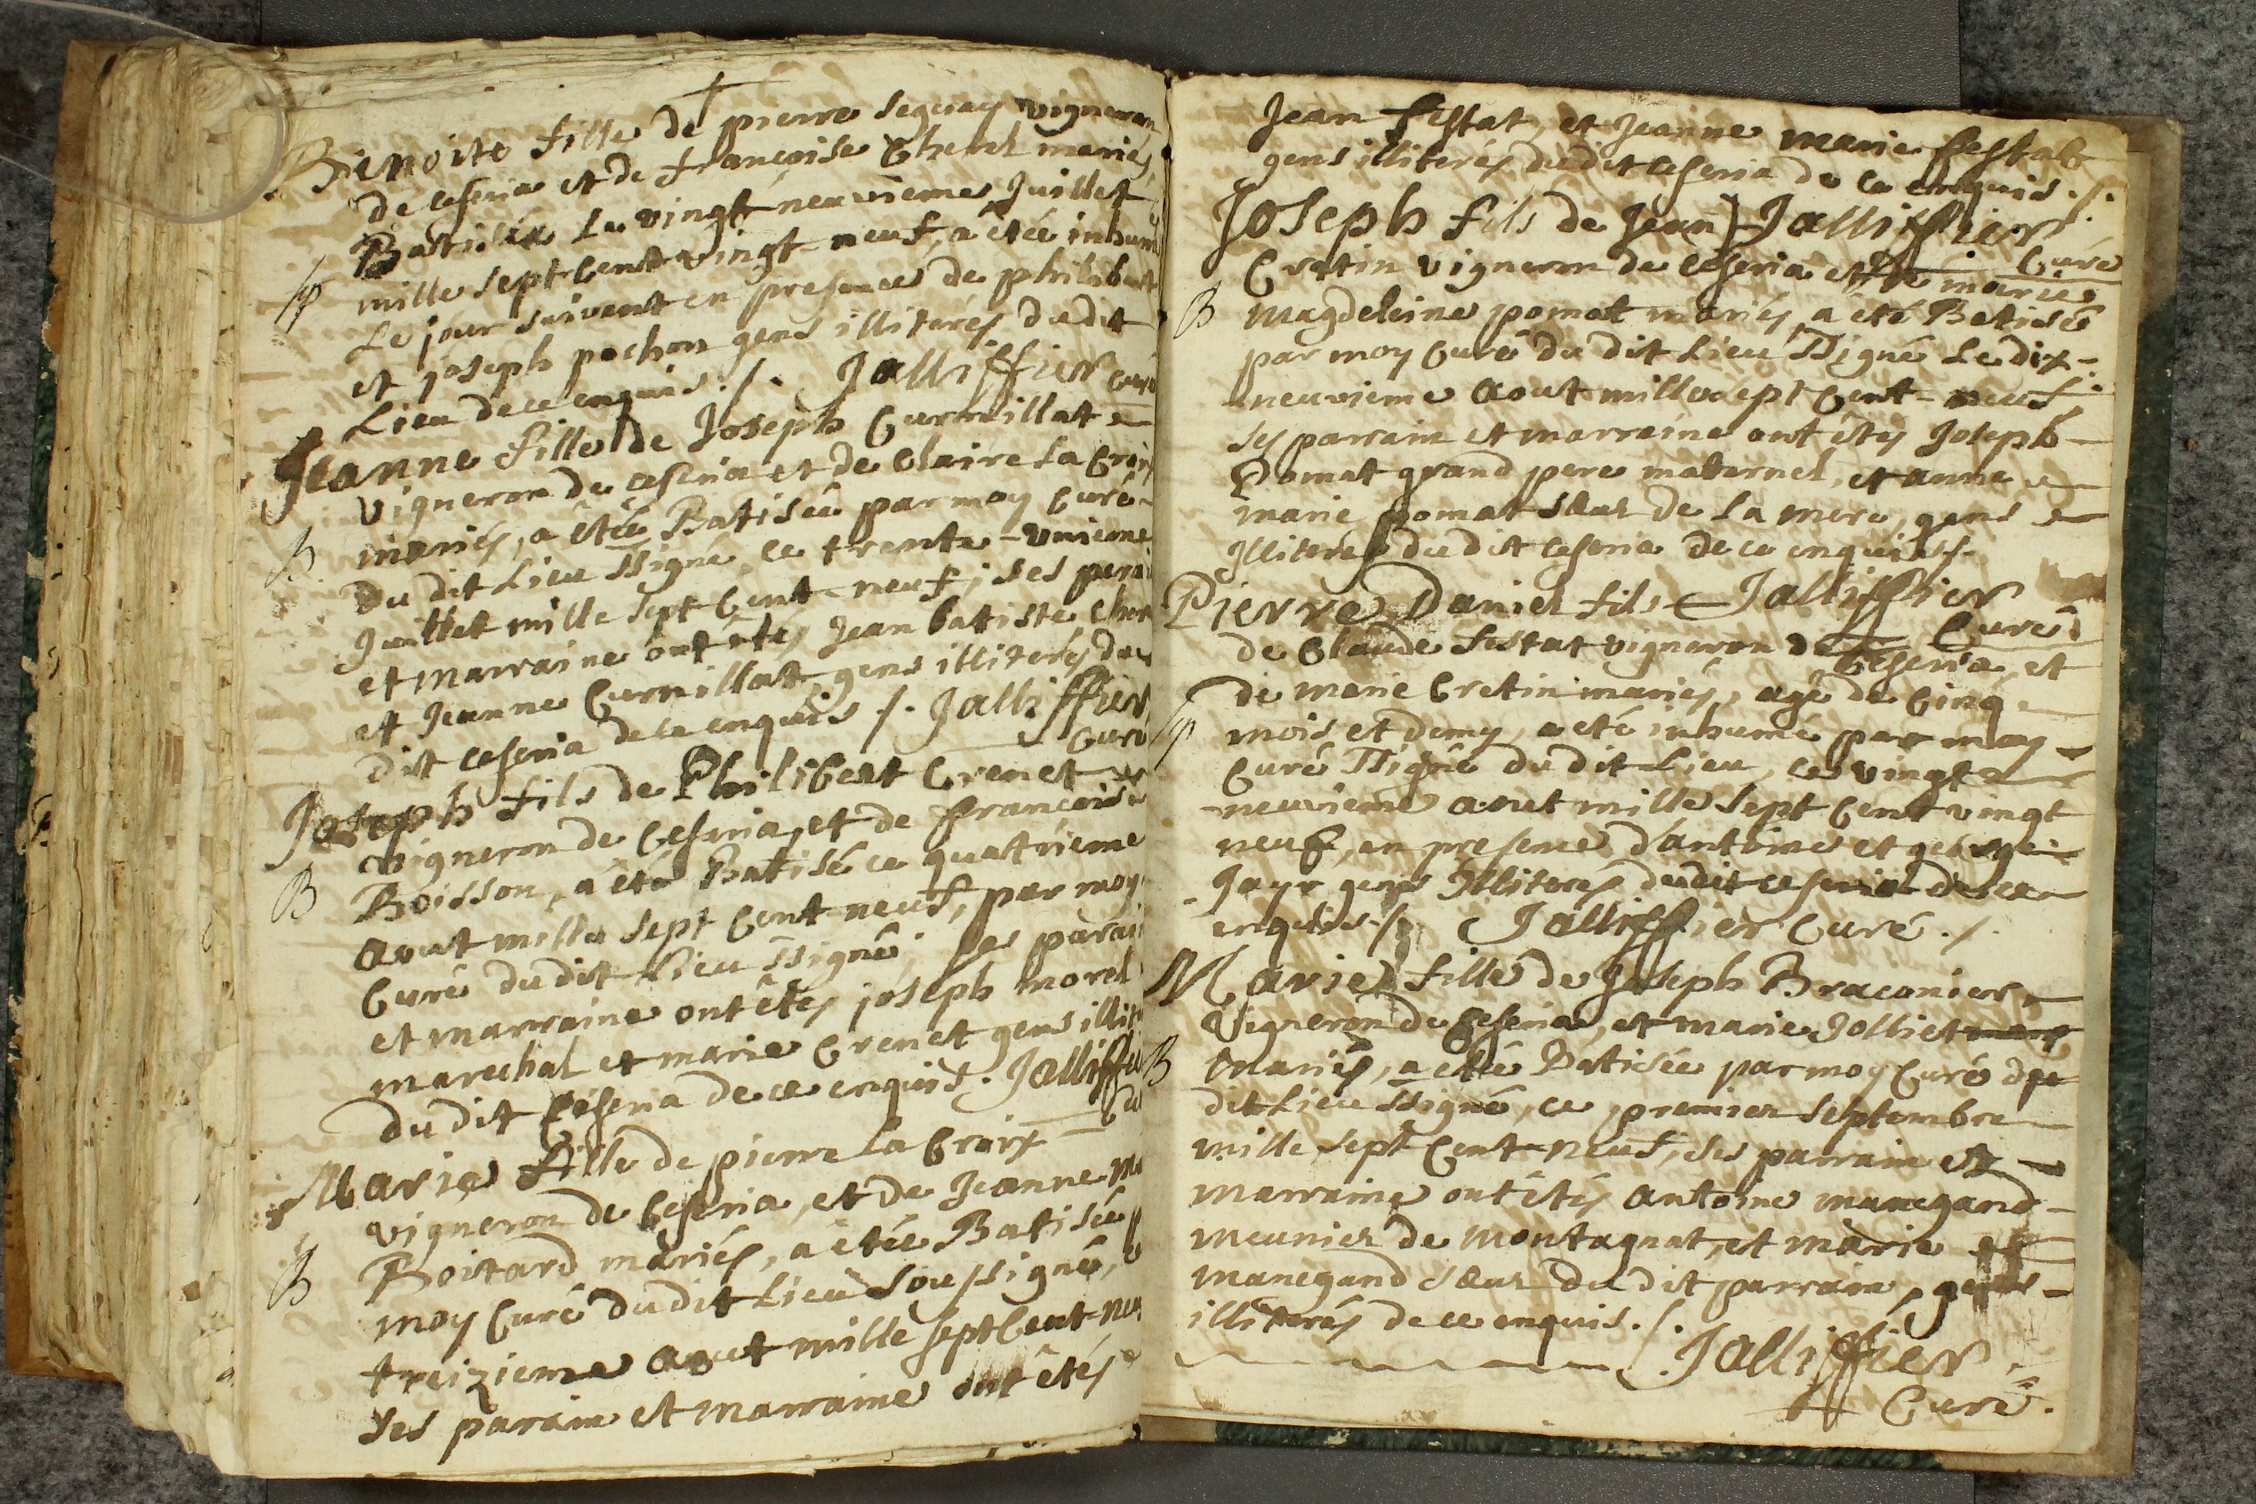 Benoite fille de pierre seguay vigneron
de ceseria et de françoise Chevel mariés,
Batisée le vingt-neuvieme Juillet
mille sept Cent vingt-neuf, a étée inhum
Le jour suivent en presence de philibert
et joseph pochon gens illiterés du dit
Lieu de ce enquis ./. Jalliffier curé
Jeanne fille de Joseph Curmillat
vigneron de ceseria et de Claire La Croix
B mariés, a étée Batisée par moy curé
du dit Lieu ssigné, ce trente-unieme
Juillet mille sept Cent-neuf; ses parai
et marraine ont étés Jean batiste
et Jeanne Curmillat gens illiterés du
dit ceseria de ce enquis ./. Jalliffier
Curé
Joseph fils de Philibert Crenet
vigneron de Ceseria, et de françoise
B Boisson, a été Batisé ce quatrieme
aout mille sept Cent neuf, par moy
Curé du dit Lieu ssigné, ses parai
et marraine ont étés joseph morel
marechal et marie Crenet gens illit
du dit Ceseria de ce enquis. Jalliffi
Cu
Marie fille de pierre La Croix
vigneron de Ceseria, et de Jeanne M
B Boitard mariés, a étée Batisée p
moy Curé du dit Lieu soussigné,
treizieme aout mille sept Cent-neu
ses parain et marraine ont étés
Jean festat, et Jeanne marie festat
gens illiterés du dit ceseria de ce enquis ./.
Joseph fils de Jean Jalliffier
Curé
Cretin vigneron de ceseria et de marie
B magdeleine pomat mariés, a été Batisé
par moy Curé du dit Lieu ssigné Le dix-
neuvieme aout mille sept Cent-neuf
ses parrain et marraine ont étés Joseph
Pomat grand pere maternel, et anne
marie pomat sœur de La mere, gens
Illiterés du dit ceseria de ce enquis ./.
Pierre Daniel fils Jalliffier
Curé
de Claude festat vigneron de Ceseria, et
de marie Cretin mariés, agé de Cinq
mois et demy, a eté inhumé par moy
Curé ssigné du dit Lieu, ce vingt
neuvieme aout mille sept Cent vingt
neuf, en presence d'antoine et
Jayr gens illiterés du dit ceseria de ce
enquis ./. Jalliffier Curé ./.
Marie fille de Joseph Braconier
Vigneron de Ceseria, et marie Jolliet
B mariés, a étée Batisée par moy Curé du
dit Lieu ssigné, ce premier septembre
mille sept Cent-neuf, ses parrain et
marraine ont étés antoine manegand
meunier de montagnat, et marie
manegand sœur du dit parrain, gens
illiterés de ce enquis ./.
Jalliffier
Curé.